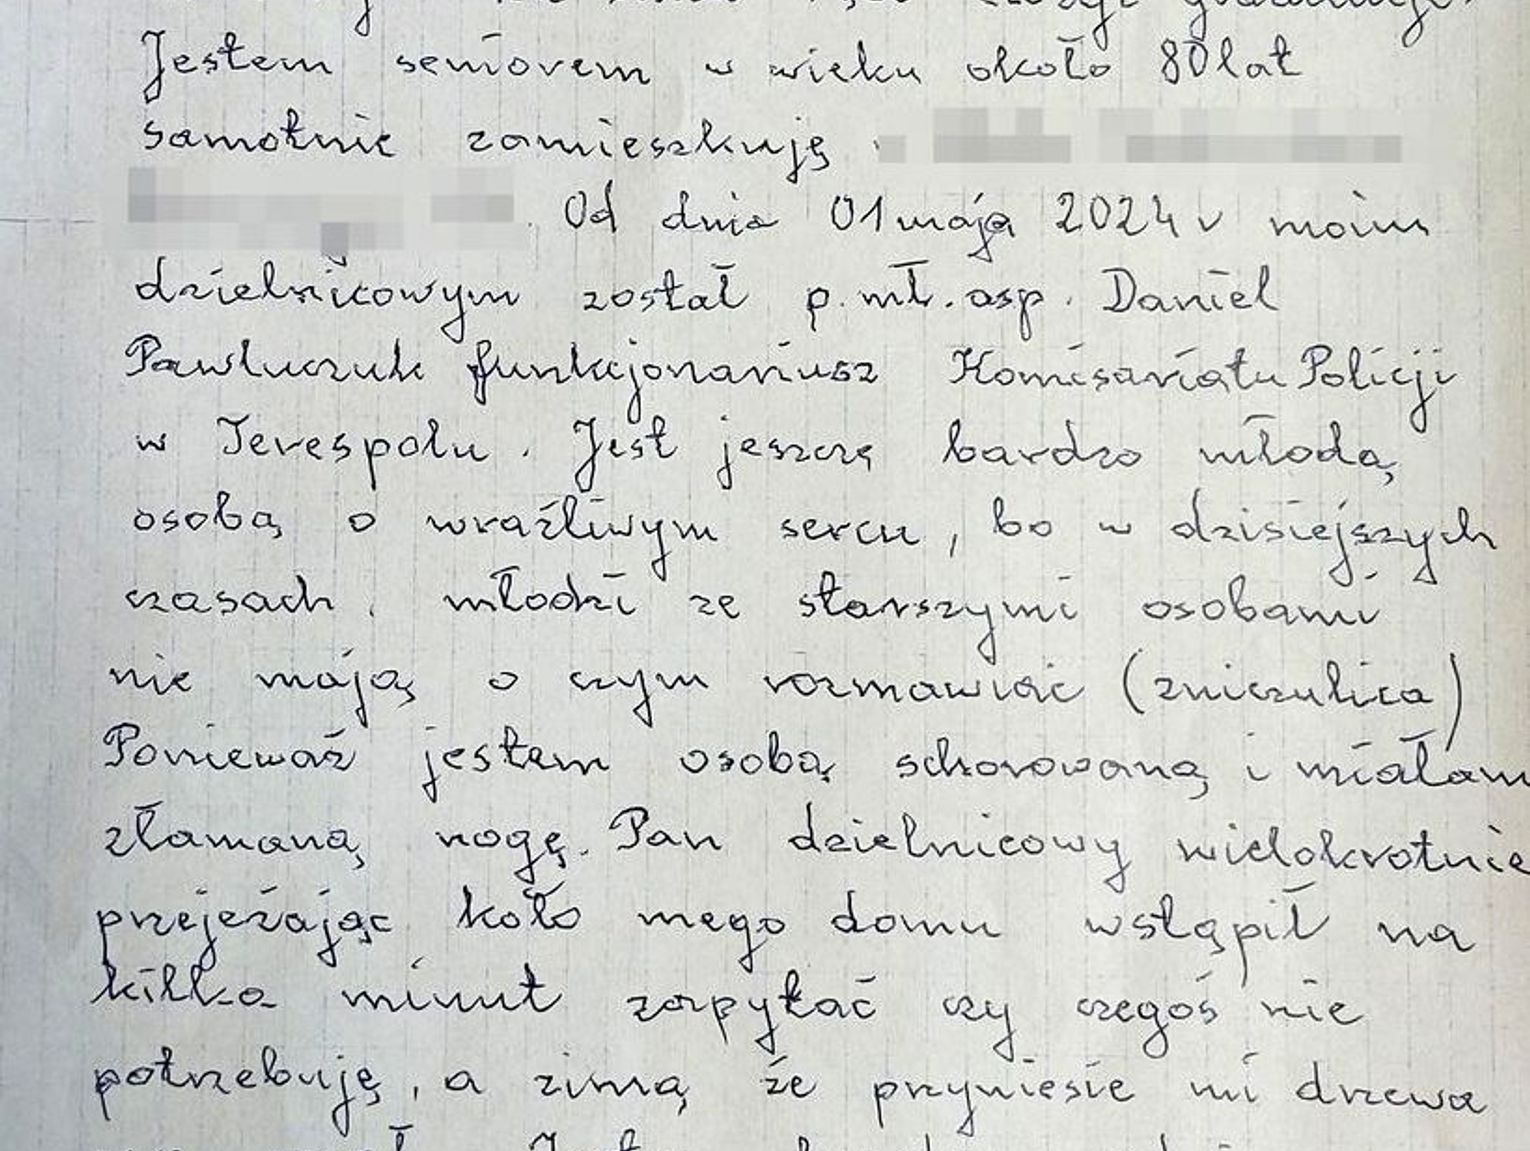 Jestem seniorem w wieku około 80 lat
samotnie zamieszkuję
Od dnia 01 maja 2024 r moim
dzielnicowym został p. mł. asp. Daniel
Pawluczuk funkcjonariusz Komisariatu Policji
w Terespolu. Jest jeszcze bardzo młodą
osobą o wrażliwym sercu, bo w dzisiejszych
czasach. młodzi ze starszymi osobami
nie mają o czym rozmawiać (znieczulica)
Ponieważ jestem osobą schorowaną i miałam
złamaną nogę. Pan dzielnicowy wielokrotnie
przejeżając koło mego domu wstąpił na
kilka minut zapytać czy czegoś nie
potrzebuję, a zimą że przyniesie mi drzewa